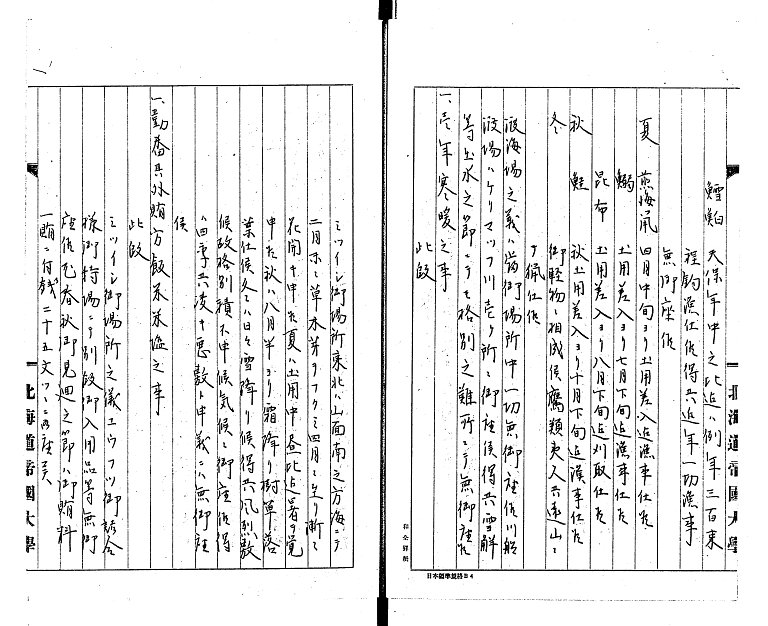 鱈釣 天保年中之比迄ハ例年三百束
程釣漁仕候得共近年一切漁事
無御座候
夏 煎海鼠 四月中旬ヨリ土用差入迄漁事仕候
鰯 土用差入ヨリ七月下旬迄漁事仕候
昆布 土用差入ヨリ八月下旬迄刈取仕候
秋 鮭 秋土用差入ヨリ十月下旬迄漁事仕候
冬 御軽物ニ相成候鷹類夷人共遠山ニ
テ猟仕候
渡海場之義ハ当御場所中一切無御座候川船
渡場ハケリマツフ川壱ケ所ニ御座候得共雪解
等出水之節ニテモ格別之難所ニテ無御座候
一、壱年寒暖之事
此段
ミツイシ御場所東北ハ山面南之方海ニテ
二月末ニ草木芽ヲフクミ四月ニ至リ漸ニ
花開キ申候夏ハ土用中昼比迄暑ヲ覚
申候秋ハ八月半ヨリ霜降リ樹草落
葉仕候冬ハ日々雪降リ候得共風烈敷
候故格別積不申候気候ニ御座候得
ハ四季共凌キ悪敷ト申義ニハ無御座
候
一、勤番其外賄方飯米米塩之事
此段
ミツイシ御場所之儀エウフツ御詰合
様御持場ニテ別段御入用品等無御
座候尤春秋御見廻之節ハ御賄料
一賄ニ付銭二十五文ツヽ
北海道帝國大學
北海道帝國大學
日本標準規格B4